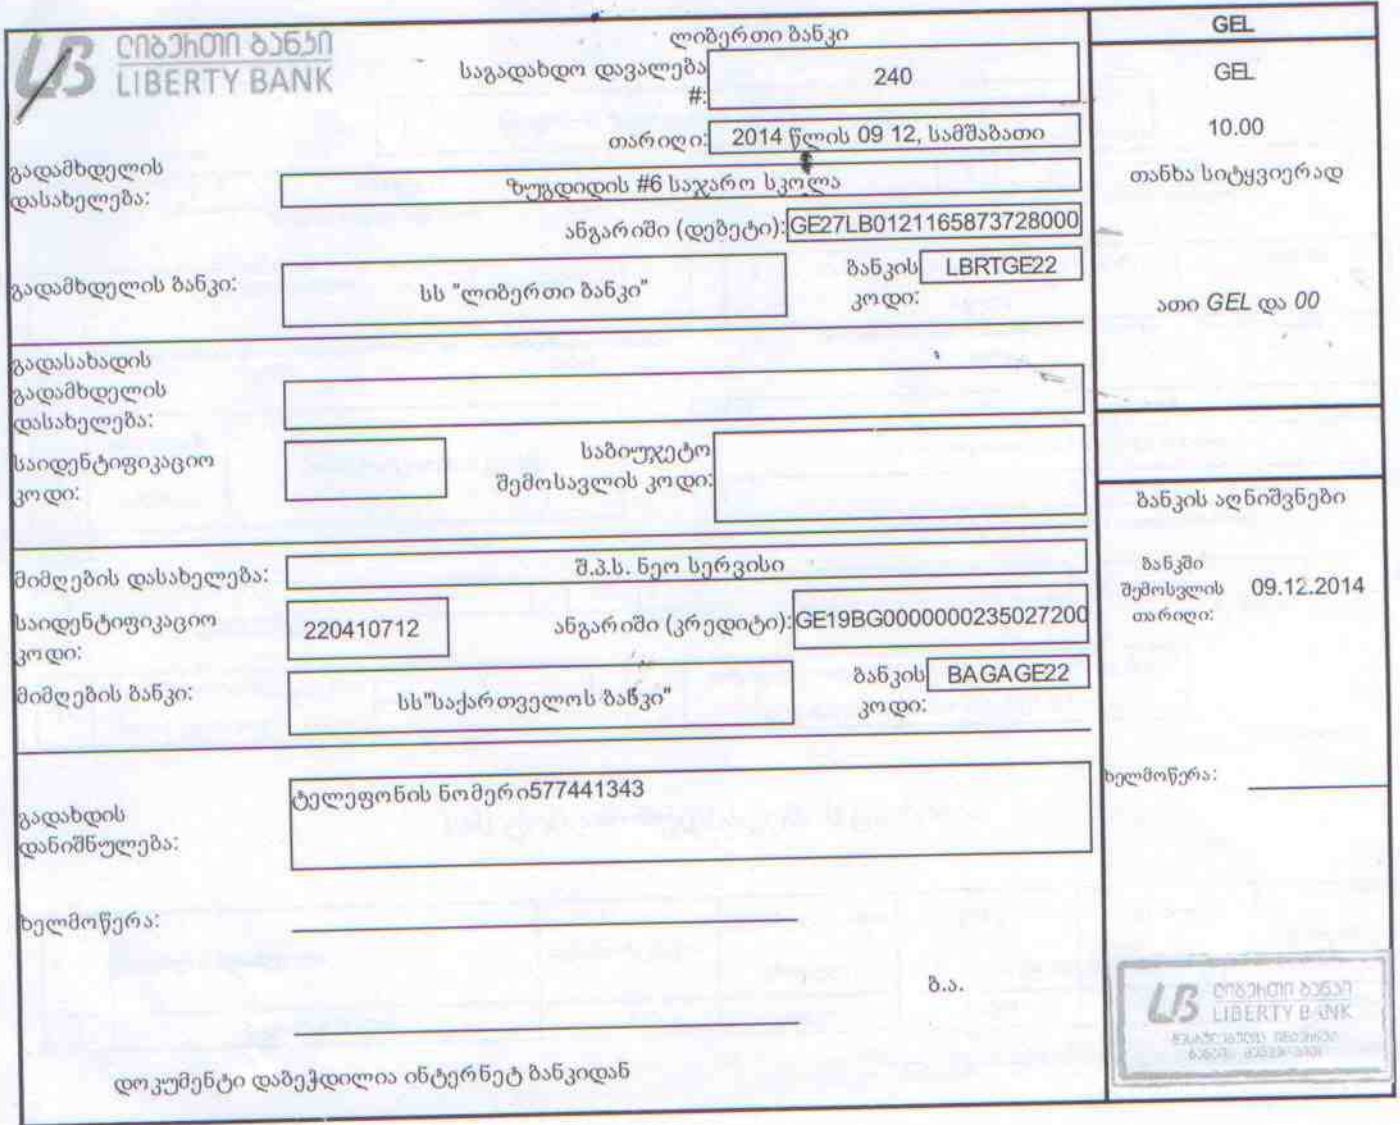 ლიბერთი ბანკი
LIBERTY BANK
ლიბერთი ბანკი
საგადახდო დავალება #: 240
თარიღი: 2014 წლის 09 12, სამშაბათი
გადამხდელის დასახელება: ზუგდიდის #6 საჯარო სკოლა
ანგარიში (დებეტი): GE27LB0121165873728000
გადამხდელის ბანკი: სს "ლიბერთი ბანკი"
ბანკის კოდი: LBRTGE22
გადასახადის გადამხდელის დასახელება:
საიდენტიფიკაციო კოდი:
საბიუჯეტო შემოსავლის კოდი:
მიმღების დასახელება: შ.პ.ს. ნეო სერვისი
საიდენტიფიკაციო კოდი: 220410712
ანგარიში (კრედიტი): GE19BG0000000235027200
მიმღების ბანკი: სს"საქართველოს ბანკი"
ბანკის კოდი: BAGAGE22
გადახდის დანიშნულება: ტელეფონის ნომერი577441343
ხელმოწერა:
ბ.ა.
დოკუმენტი დაბეჭდილია ინტერნეტ ბანკიდან
GEL
GEL
10.00
თანხა სიტყვიერად
ათი GEL და 00
ბანკის აღნიშვნები
ბანკში შემოსვლის თარიღი: 09.12.2014
ხელმოწერა:
ლიბერთი ბანკი
LIBERTY BANK